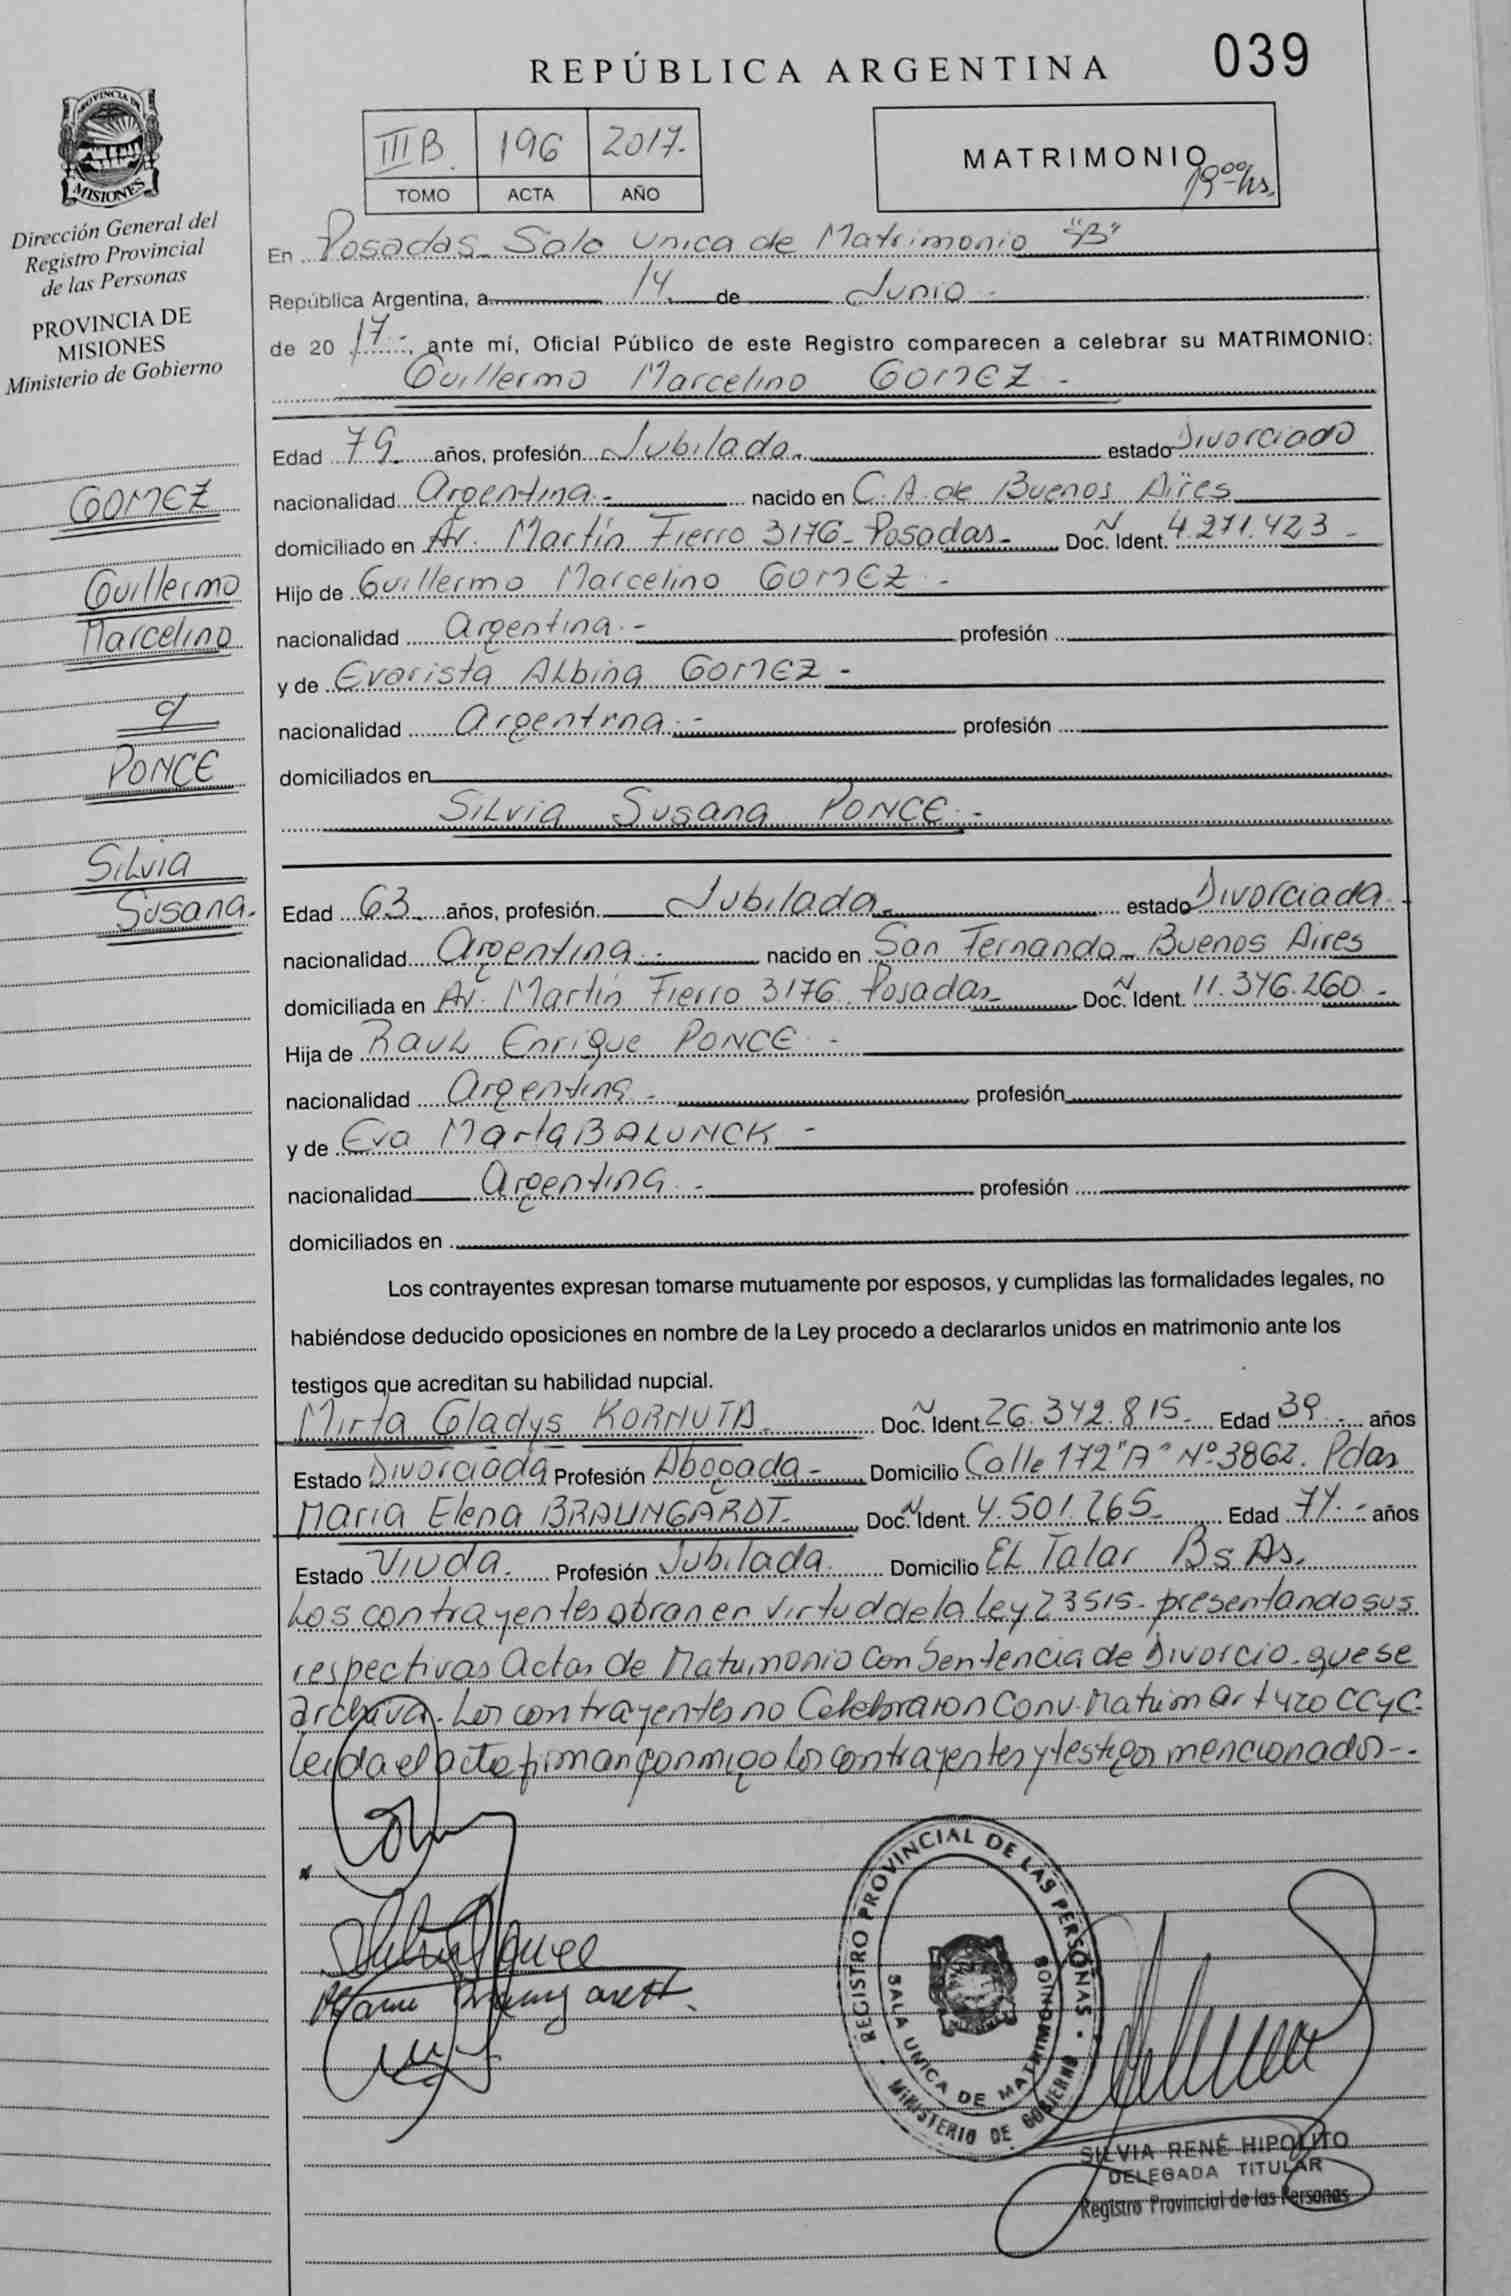 039
REPÚBLICA ARGENTINA
PROVINCIA DE
MISIONES
Dirección General del
Registro Provincial
de las Personas
PROVINCIA DE
MISIONES
Ministerio de Gobierno
GOMEZ
Guillermo
Marcelino
c/
PONCE
Silvia
Susana.
III B. 196 2017.-
TOMO ACTA AÑO
MATRIMONIO
19 00 hs.
En Posadas Sala Unica de Matrimonio "B"
República Argentina, a 14 de Junio -
de 20 17.- , ante mí, Oficial Público de este Registro comparecen a celebrar su MATRIMONIO:
Guillermo Marcelino GOMEZ -
Edad 79 años, profesión Jubilado. estado Divorciado
nacionalidad Argentina.- nacido en C.A. de Buenos Aires
domiciliado en Av. Martín Fierro 3176- Posadas- Doc. Ident. N 4.271.423 -
Hijo de Guillermo Marcelino GOMEZ.-
nacionalidad Argentina.- profesión
y de Evarista Albina GOMEZ -
nacionalidad Argentina.- profesión
domiciliados en
Silvia Susana PONCE.-
Edad 63 años, profesión Jubilada estado Divorciada.
nacionalidad Argentina.- nacido en San Fernando- Buenos Aires
domiciliada en Av. Martín Fierro 3176. Posadas- Doc. Ident. N 11.376.260 -
Hija de Raul Enrique PONCE.-
nacionalidad Argentina.- profesión
y de Eva Marta BALUNCK -
nacionalidad Argentina.- profesión
domiciliados en
Los contrayentes expresan tomarse mutuamente por esposos, y cumplidas las formalidades legales, no
habiéndose deducido oposiciones en nombre de la Ley procedo a declararlos unidos en matrimonio ante los
testigos que acreditan su habilidad nupcial.
Mirta Gladys KORNUTA. Doc. Ident. N 26.342.815.- Edad 39.- años
Estado Divorciada Profesión Abogada- Domicilio Calle 172 "A" Nº 3862. Pdas
Maria Elena BRAUNGARDT- Doc. Ident. N 4.501.265- Edad 74.- años
Estado Viuda. Profesión Jubilada. Domicilio El Talar Bs As.
Los contrayentes obran en virtud de la Ley 23515- presentando sus
respectivas Actas de Matrimonio con Sentencia de Divorcio- que se
archiva. Los contrayentes no Celebraron Conv. Matrim art 420 CCyC-
Leida el acta firman conmigo los contrayentes y testigos mencionados-.
REGISTRO PROVINCIAL DE LAS PERSONAS
SALA UNICA DE MATRIMONIOS
MINISTERIO DE GOBIERNO
SILVIA RENÉ HIPOLITO
DELEGADA TITULAR
Registro Provincial de las Personas